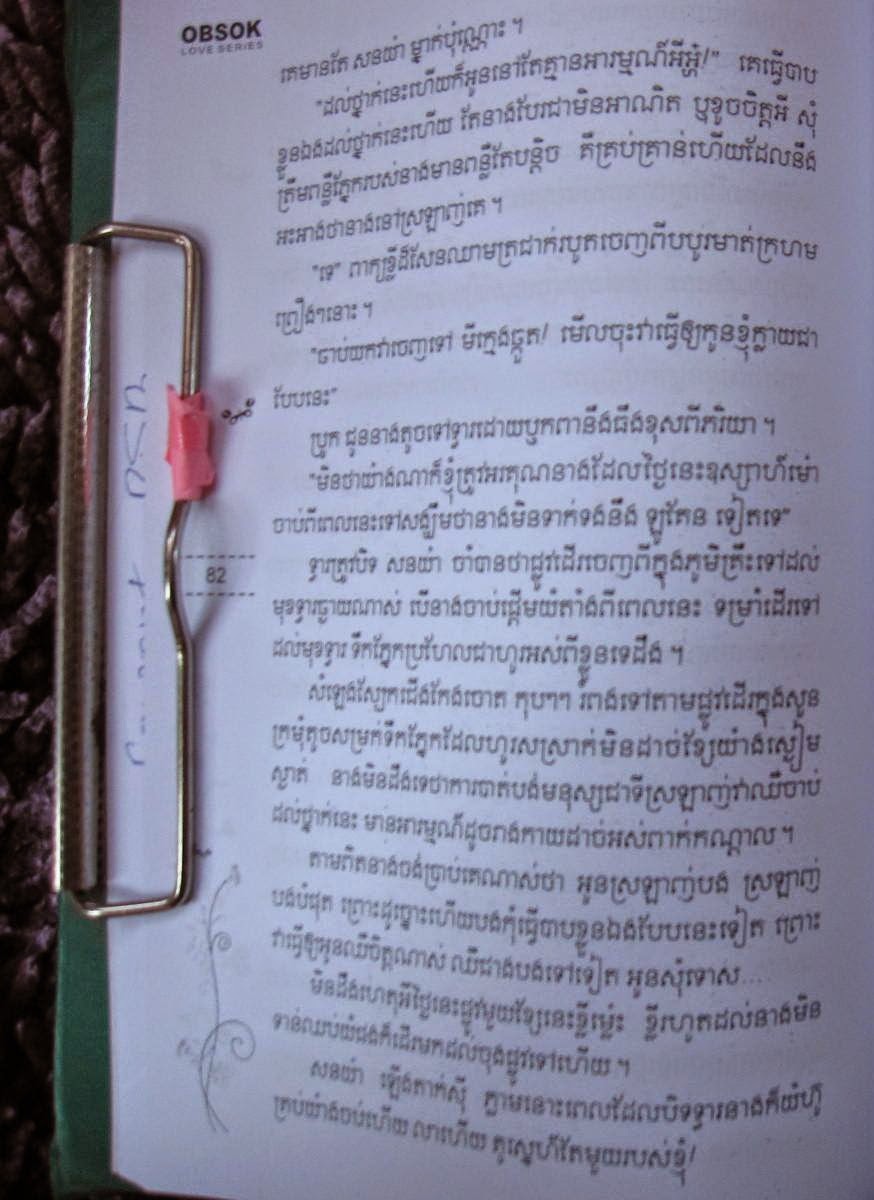 OBSOK
LOVE SERIES
គេមានតែ សនយ៉ា ម្នាក់ប៉ុណ្ណោះ ។
"ដល់ថ្នាក់នេះហើយក៏អូននៅតែគ្មានអារម្មណ៍អីអ្ហ៎!" គេធ្វើបាប
ខ្លួនឯងដល់ថ្នាក់នេះហើយ តែនាងបែរជាមិនអាណិត ឬខូចចិត្តអី សុំ
ត្រឹមពន្លឺភ្នែករបស់នាងមានពន្លឺតែបន្តិច គឺគ្រប់គ្រាន់ហើយដែលនឹង
អះអាងថានាងនៅស្រឡាញ់គេ ។
"ទេ" ពាក្យខ្លីដ៏សែនឈាមត្រជាក់របូតចេញពីបបូរមាត់ក្រហម
ព្រឿងៗនោះ ។
"ចាប់យកវាចេញទៅ មីក្មេងឆ្កួត! មើលចុះវាធ្វើឲ្យកូនខ្ញុំក្លាយជា
បែបនេះ"
ប្រុក ជូននាងតូចទៅទ្វារដោយឫកពានឹងធឹងខុសពីភរិយា ។
"មិនថាយ៉ាងណាក៏ខ្ញុំត្រូវអរគុណនាងដែលថ្ងៃនេះឧស្សាហ៍ម៉ោ
ចាប់ពីពេលនេះទៅសង្ឃឹមថានាងមិនទាក់ទងនឹង ឡូគែន ទៀតទេ"
82
ទ្វារត្រូវបិទ សនយ៉ា ចាំបានថាផ្លូវដើរចេញពីក្នុងភូមិគ្រឹះទៅដល់
មុខទ្វារឆ្ងាយណាស់ បើនាងចាប់ផ្ដើមយំតាំងពីពេលនេះ ទម្រាំដើរទៅ
ដល់មុខទ្វារ ទឹកភ្នែកប្រហែលជាហូរអស់ពីខ្លួនទេដឹង ។
សំឡេងស្បែកជើងកែងចោត កុបៗៗ រំពងទៅតាមផ្លូវដើរក្នុងសួន
ក្រមុំតូចសម្រក់ទឹកភ្នែកដែលហូរសស្រាក់មិនដាច់ខ្សែយ៉ាងស្ងៀម
ស្ងាត់ នាងមិនដឹងទេថាការបាត់បង់មនុស្សជាទីស្រឡាញ់វាឈឺចាប់
ដល់ថ្នាក់នេះ មានអារម្មណ៍ដូចរាងកាយដាច់អស់ពាក់កណ្ដាល ។
តាមពិតនាងចង់ប្រាប់គេណាស់ថា អូនស្រឡាញ់បង ស្រឡាញ់
បងបំផុត ព្រោះដូច្នោះហើយបងកុំធ្វើបាបខ្លួនឯងបែបនេះទៀត ព្រោះ
វាធ្វើឲ្យអូនឈឺចិត្តណាស់ ឈឺជាងបងទៅទៀត អូនសុំទោស....
មិនដឹងហេតុអីថ្ងៃនេះផ្លូវមួយខ្សែនេះខ្លីម្ល៉េះ ខ្លីរហូតដល់នាងមិន
ទាន់ឈប់យំផងក៏ដើរមកដល់ចុងផ្លូវទៅហើយ ។
សនយ៉ា ឡើងតាក់ស៊ី ភ្លាមនោះពេលដែលបិទទ្វារនាងក៏យំហ៊ូ
គ្រប់យ៉ាងចប់ហើយ លាហើយ គូស្នេហ៍តែមួយរបស់ខ្ញុំ!